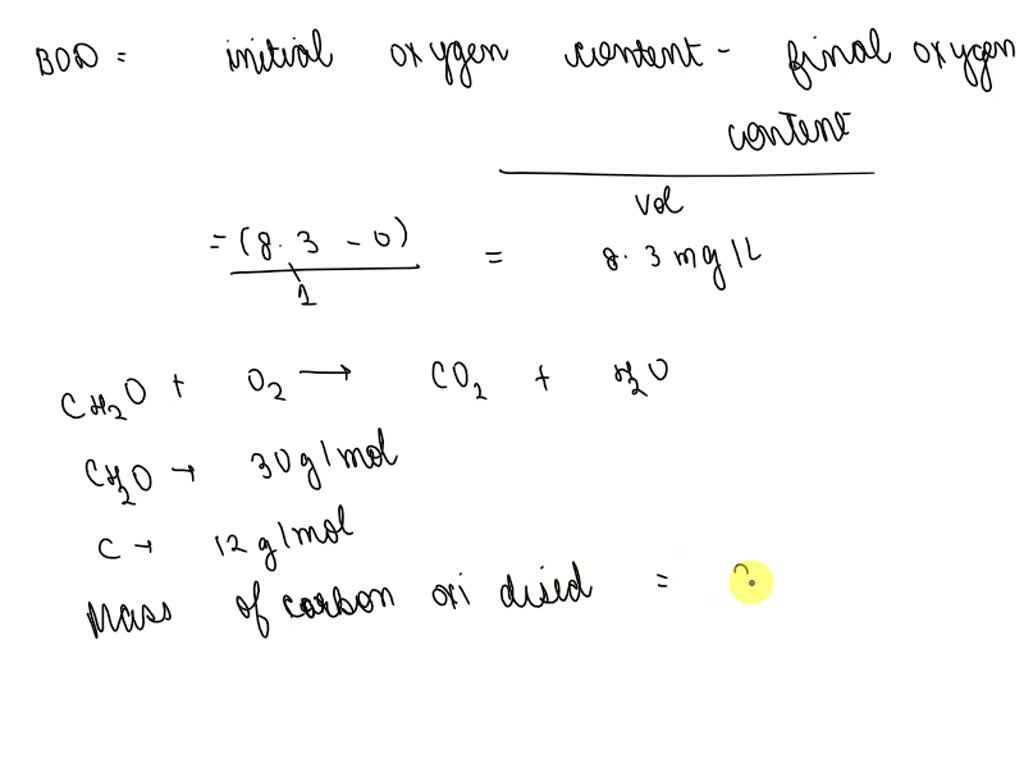 BOD = initial oxygen content - final oxygen
content
vol
= (8.3 - 0) = 8.3 mg/L
1
CH₂O + O₂ → CO₂ + H₂O
CH₂O → 30 g/mol
C → 12 g/mol
Mass of carbon oxidised =